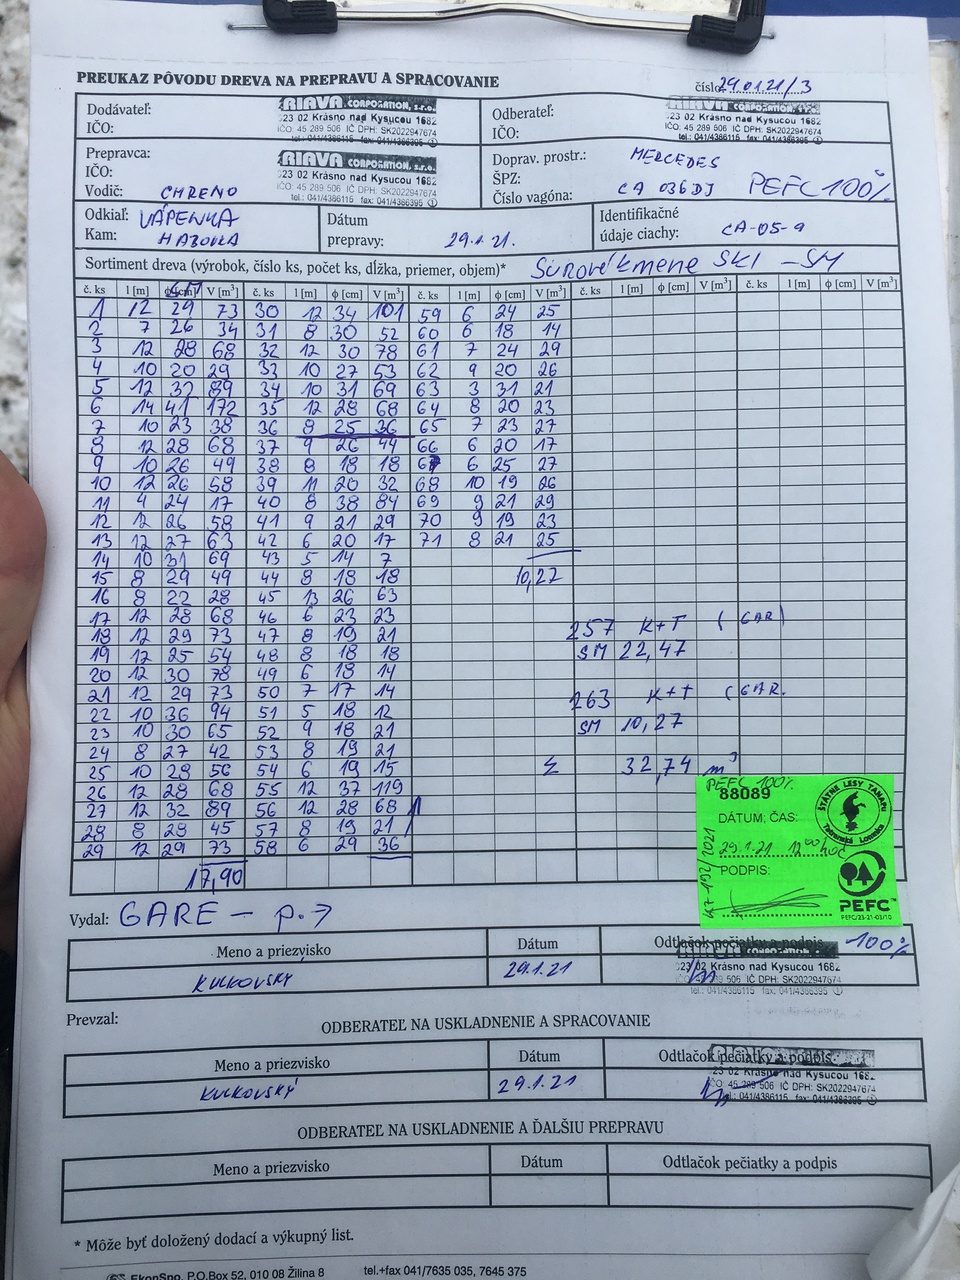 PREUKAZ PÔVODU DREVA NA PREPRAVU A SPRACOVANIE
číslo 290121/3
Dodávateľ:
IČO:
RIAVA CORPORATION, s.r.o.
023 02 Krásno nad Kysucou 1682
IČO: 45 289 506 IČ DPH: SK2022947674
tel.: 041/4386115 fax: 041/4386395 ①
Odberateľ:
IČO:
RIAVA CORPORATION, s.r.o.
023 02 Krásno nad Kysucou 1682
IČO: 45 289 506 IČ DPH: SK2022947674
tel.: 041/4386115 fax: 041/4386395 ①
Prepravca:
IČO:
Vodič: CHRENO
RIAVA CORPORATION, s.r.o.
023 02 Krásno nad Kysucou 1682
IČO: 45 289 506 IČ DPH: SK2022947674
tel.: 041/4386115 fax: 041/4386395 ①
Doprav. prostr.: MERCEDES
ŠPZ:
Číslo vagóna: CA 036DJ PEFC 100%
Odkiaľ: VÁPENKA
Kam: HABOVKA
Dátum
prepravy: 29.1.21.
Identifikačné
údaje ciachy: CA-05-9
Sortiment dreva (výrobok, číslo ks, počet ks, dĺžka, priemer, objem)* Surové kmene SKI - SM
č. ks l [m] ϕ [cm] V [m³] č. ks l [m] ϕ [cm] V [m³] č. ks l [m] ϕ [cm] V [m³] č. ks l [m] ϕ [cm] V [m³] č. ks l [m] ϕ [cm] V [m³]
1 12 29 73 30 12 34 101 59 6 24 25
2 7 26 34 31 8 30 52 60 6 18 14
3 12 28 68 32 12 30 78 61 7 24 29
4 10 20 29 33 10 27 53 62 9 20 26
5 12 32 89 34 10 31 69 63 3 31 21
6 14 41 172 35 12 28 68 64 8 20 23
7 10 23 38 36 8 25 36 65 7 23 27
8 12 28 68 37 9 26 44 66 6 20 17
9 10 26 49 38 8 18 18 67 6 25 27
10 12 26 58 39 11 20 32 68 10 19 26
11 4 24 17 40 8 38 84 69 9 21 29
12 12 26 58 41 9 21 29 70 9 19 23
13 12 27 63 42 6 20 17 71 8 21 25
14 10 31 69 43 5 14 7
15 8 29 49 44 8 18 18 10,27
16 8 22 28 45 13 26 63
17 12 28 68 46 6 23 23
18 12 29 73 47 8 19 21 257 K+T (GAR)
19 12 25 54 48 8 18 18 SM 22,47
20 12 30 78 49 6 18 14
21 12 29 73 50 7 17 14 263 K+T (GAR.
22 10 36 94 51 5 18 12
23 10 30 65 52 9 18 21 SM 10,27
24 8 27 42 53 8 19 21
25 10 28 56 54 6 19 15 Σ 32,74 m³
26 12 28 68 55 12 37 119
27 12 32 89 56 12 28 68
28 8 28 45 57 8 19 21
29 12 29 73 58 6 29 36
17,90
PEFC 100%
88089
DÁTUM; ČAS:
29.1.21 12⁰⁰ hod
PODPIS:
ŠTÁTNE LESY TANAPU
Tatranská Lomnica
PEFC™
PEFC/23-21-03/10
Vydal: GARE - p.7
Meno a priezvisko Dátum Odtlačok pečiatky a podpis 100%
KULKOVSKÝ 29.1.21
023 02 Krásno nad Kysucou 1682
IČO: 45 289 506 IČ DPH: SK2022947674
tel.: 041/4386115 fax: 041/4386395 ①
Prevzal:
ODBERATEĽ NA USKLADNENIE A SPRACOVANIE
Meno a priezvisko Dátum Odtlačok pečiatky a podpis
KULKOVSKÝ 29.1.21
023 02 Krásno nad Kysucou 1682
IČO: 45 289 506 IČ DPH: SK2022947674
tel.: 041/4386115 fax: 041/4386395 ①
ODBERATEĽ NA USKLADNENIE A ĎALŠIU PREPRAVU
Meno a priezvisko Dátum Odtlačok pečiatky a podpis
* Môže byť doložený dodací a výkupný list.
EkonSpo, P.O.Box 52, 010 08 Žilina 8 tel.+fax 041/7635 035, 7645 375